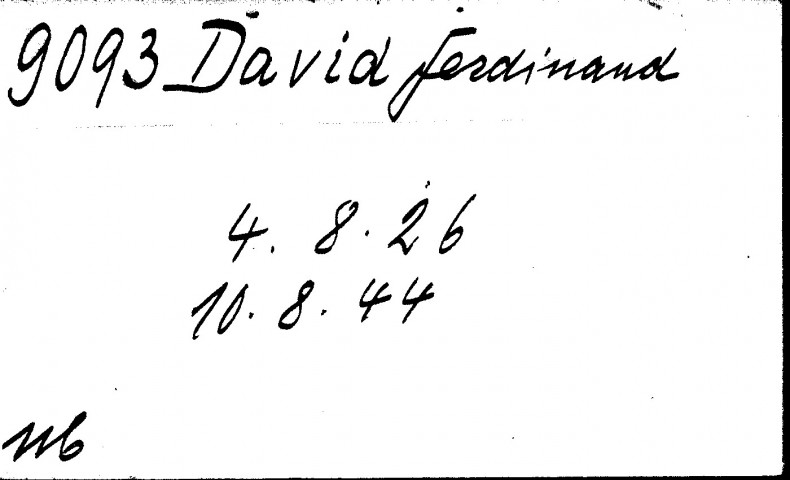 9093 David Ferdinand
4. 8. 26
10. 8. 44